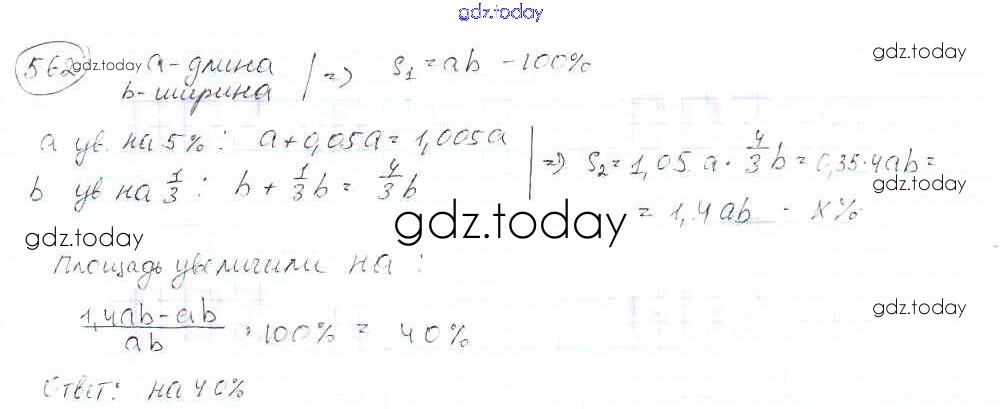 gdz.today
562 gdz.today a-длина | => S₁ = ab - 100% gdz.today
b-ширина
a ув. на 5%: a+0,05a=1,005a | => S₂=1,05.a·4/3 b=0,35·4ab=
b ув на 1/3: b + 1/3 b = 4/3 b gdz.today
= 1,4ab - x%
gdz.today gdz.today
Площадь увеличили на:
(1,4ab-ab)/ab · 100% = 40% gdz.today
Ответ: на 40%